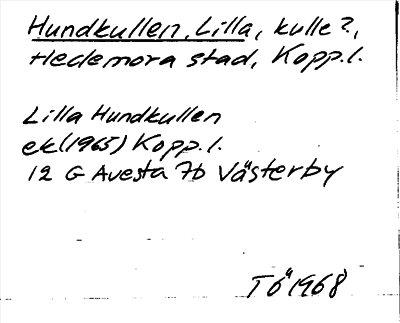 Hundkullen, Lilla, kulle?,
Hedemora stad, Kopp.l.
Lilla Hundkullen
ek(1965) Kopp.l.
12 G Avesta 7b Västerby
TÖ 1968